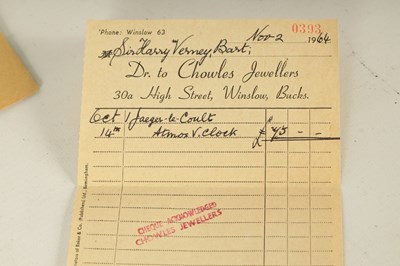 'Phone: Winslow 63
0393
Nov 2 1964
Sir Harry Verney Bart.
Dr. to Chowles Jewellers
30a High Street, Winslow, Bucks.
Oct 1 Jaeger-le-Coult
14th Atmos V. Clock £ 45 – –
CHEQUE ACKNOWLEDGED
CHOWLES JEWELLERS